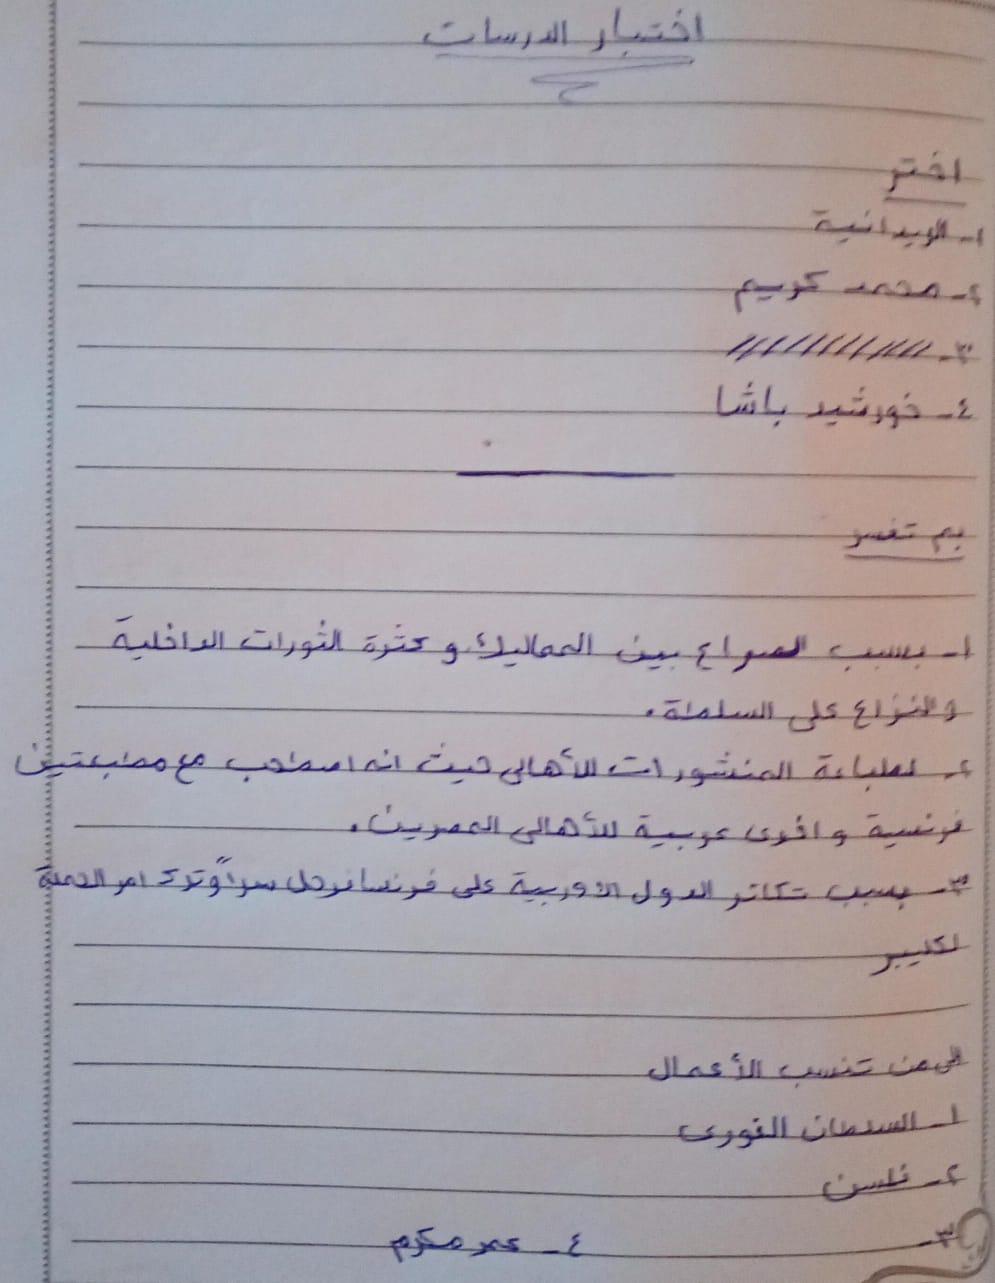 اختبار الدرسات
اختر
١- الريدانية
٢- محمد كريم
٣-
٤- خورشيد باشا
بم تفسر
١- بسبب الصراع بين المماليك وكثرة الثورات الداخلية
والنزاع على السلطة.
٢- لطباعة المنشورات للأهالى حيث انه اصطحب مع مطبعتين
فرنسية واخرى عربية للأهالى المصرين.
٣- بسبب تكاتر الدول الاوربية على فرنسا فرحل سراً وترك امر الحملة
لكليبر
الى من تنسب الأعمال
١- السلطان الغورى
٢- نلسن
٣- ٤- عمر مكرم